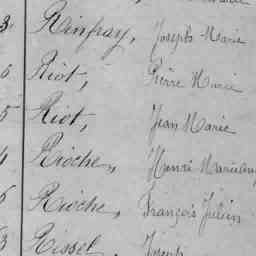 3 Rinfray, Joseph Marie
6 Riot, Pierre Marie
5 Riot, Jean Marie
4 Rioche, Henri
6 Rioche, François Julien
3 Rissel Joseph